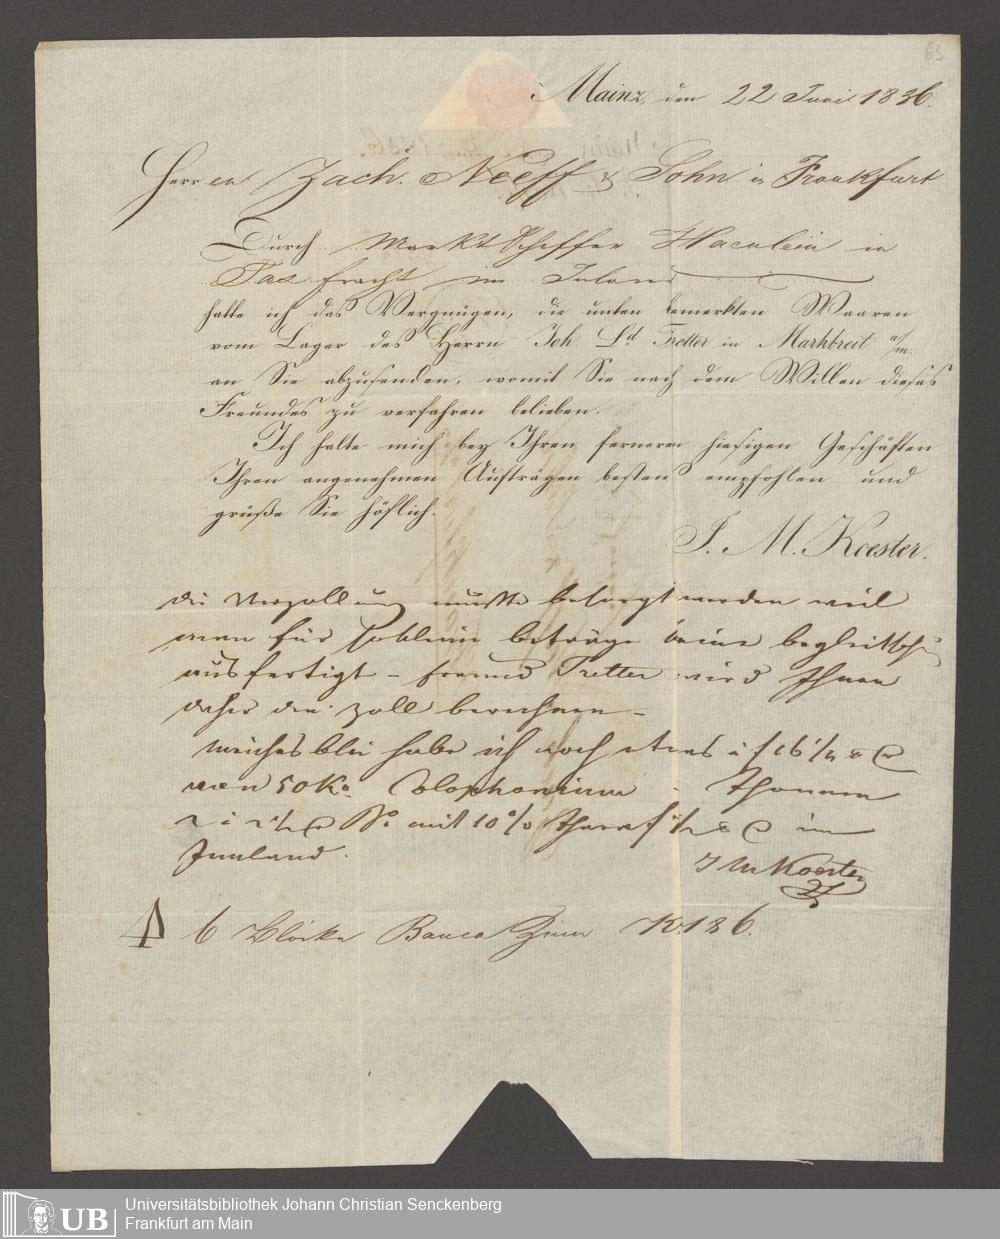 63
Mainz, den 22 Juni 1836.
Herren Zach. Neeff & Sohn in Frankfurt
Durch Markt Schiffer Haenlein in
Tax fracht im Inland
habe ich das Vergnügen, die unten bemerkten Waaren
vom Lager des Herrn Joh. Ld. Tretter in Marktbreit a/m.
an Sie abzusenden, womit Sie nach dem Willen dieses
Freundes zu verfahren belieben.
Ich halte mich bey Ihren ferneren hiesigen Geschäften
Ihren angenehmen Aufträgen bestens empfohlen und
grüße Sie höflich.
J. M. Koester.
die Verzollung mußte besorgt werden weil
man für so kleine beträge keine begleitsch
ausfertigt - freund Tretter wird Ihnen
daher den zoll berechnen -
weiches blei habe ich noch etwas
50 Ko Colophonium
mit 10 % im
Innland.
J M Koester
4 6 Blöcke Banca Zinn Ko. 186.
UB
Universitätsbibliothek Johann Christian Senckenberg
Frankfurt am Main